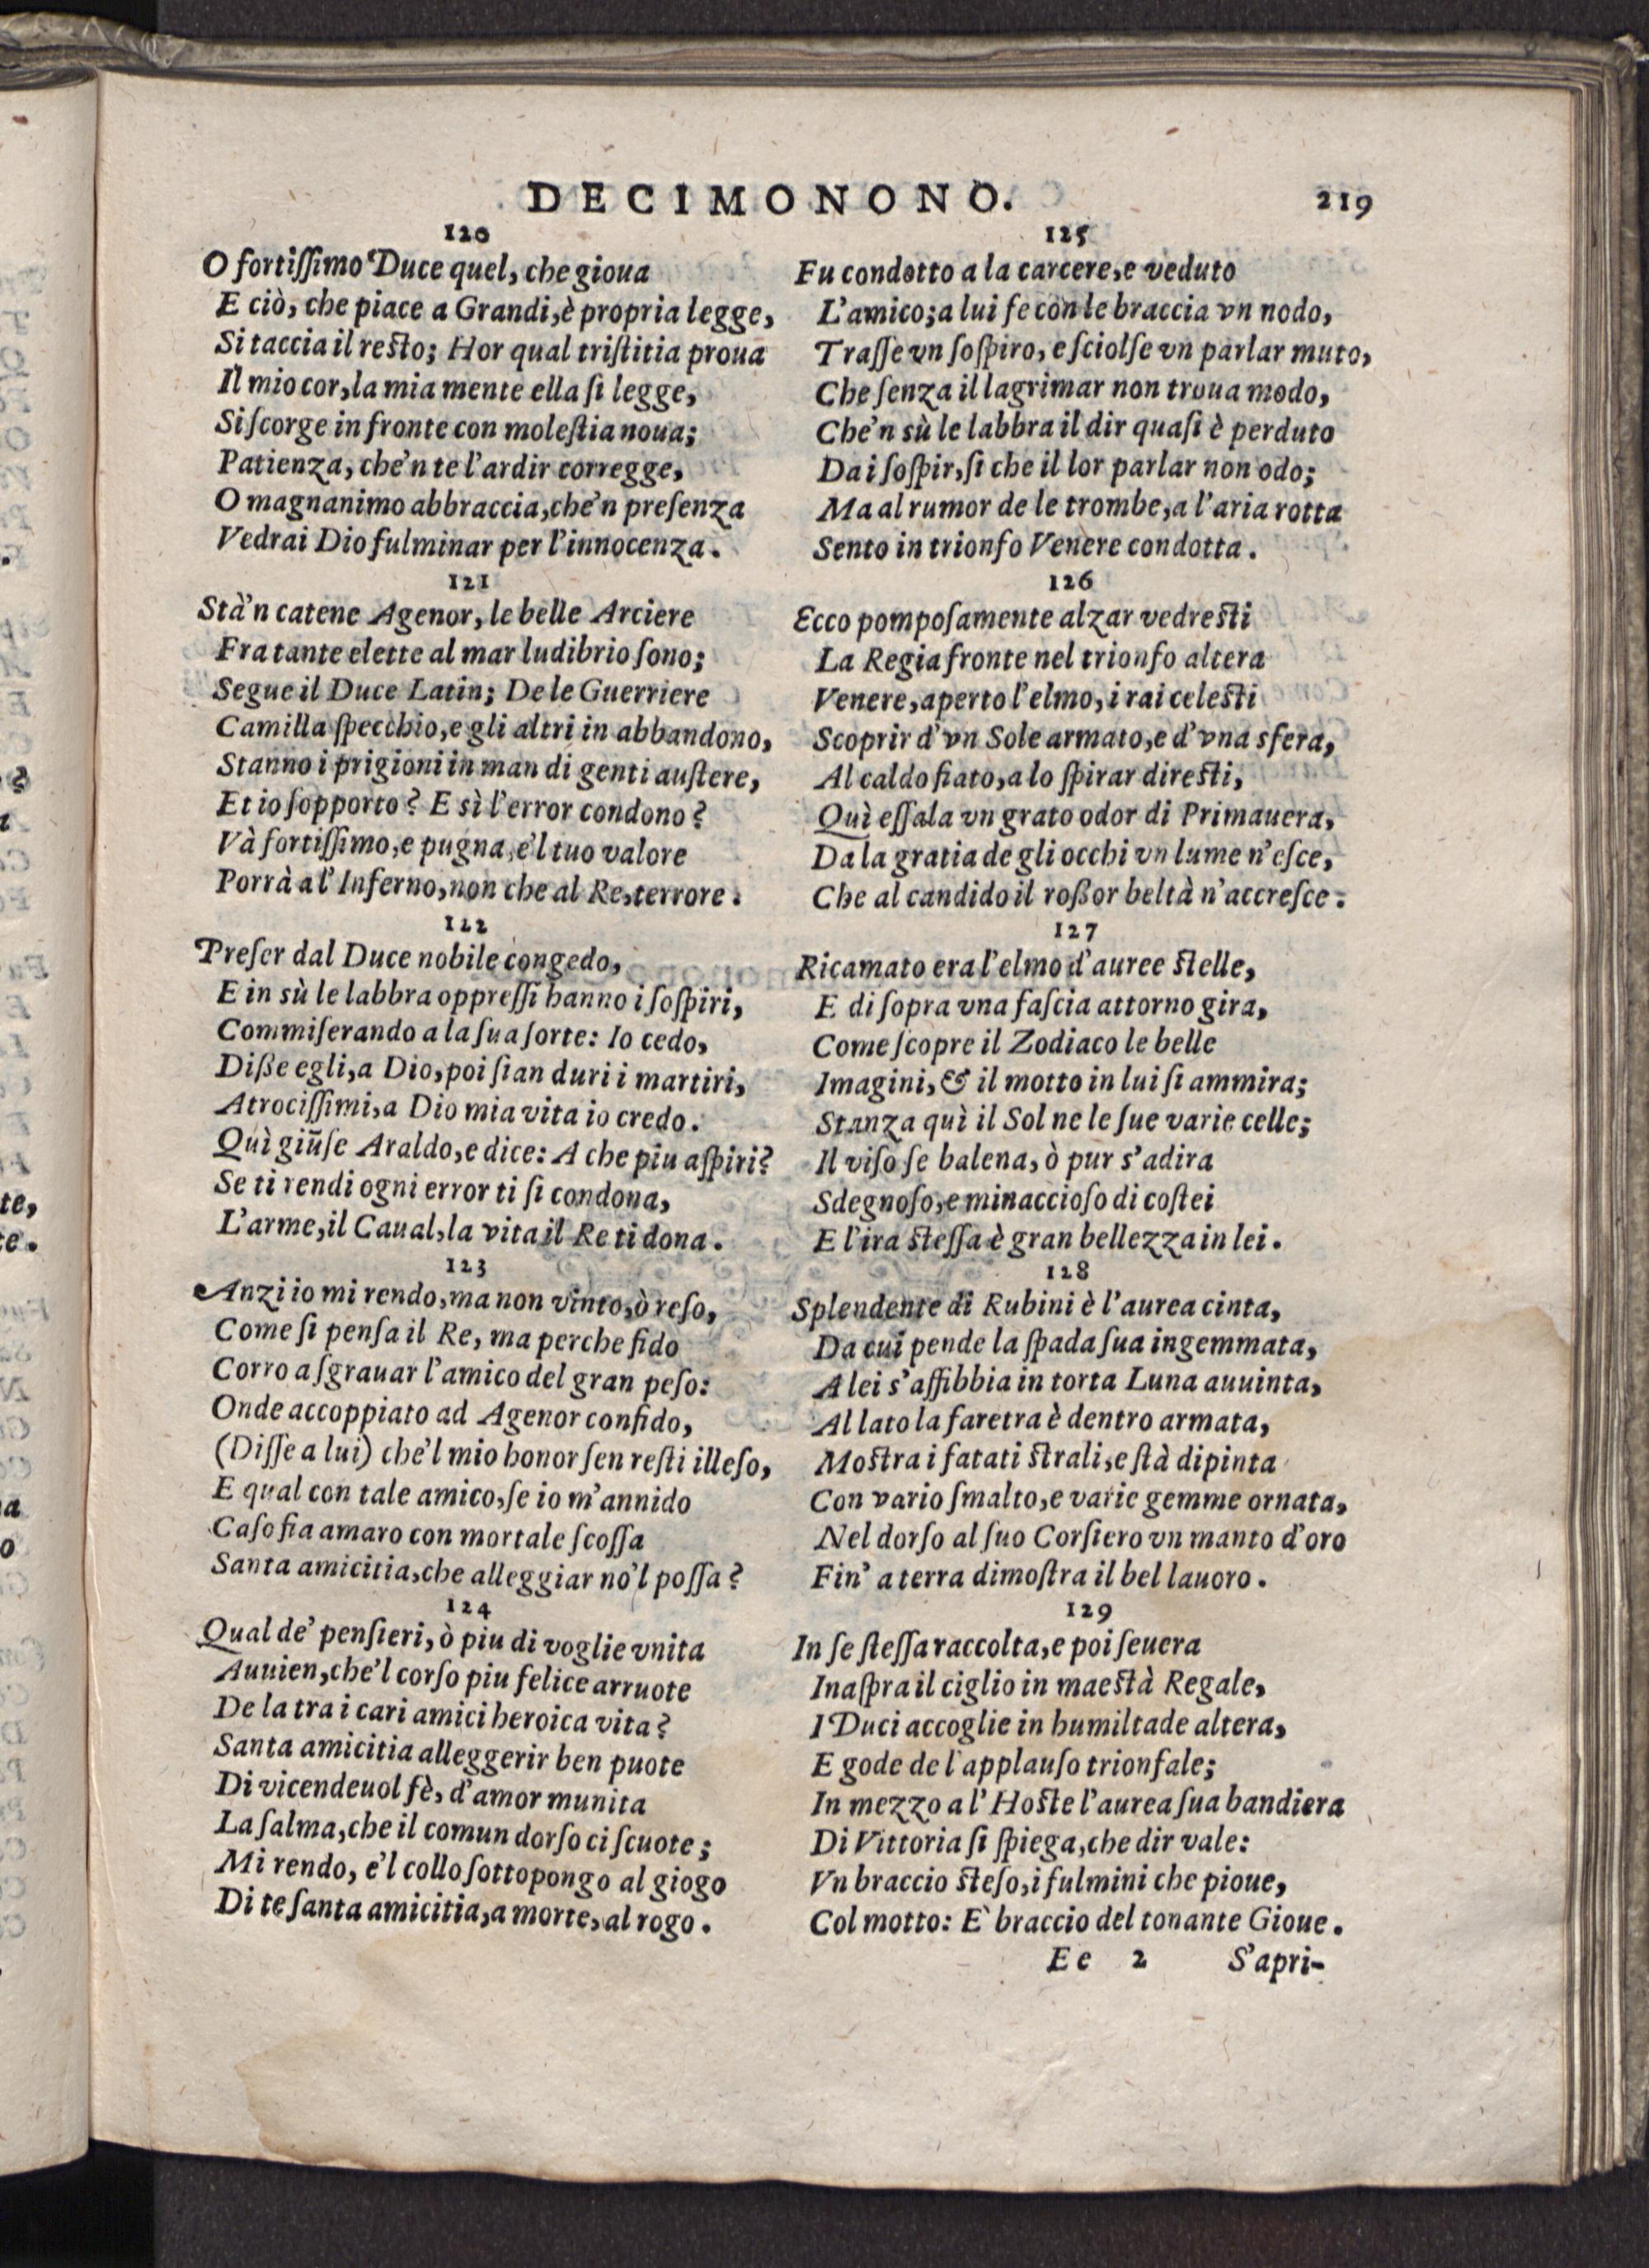 DECIMONONO. 219
120
O fortiſſimo Duce quel, che gioua
E ciò, che piace a Grandi, è propria legge,
Si taccia il reſto; Hor qual triſtitia proua
Il mio cor, la mia mente ella ſi legge,
Si ſcorge in fronte con moleſtia noua;
Patienza, che'n te l'ardir corregge,
O magnanimo abbraccia, che'n preſenza
Vedrai Dio fulminar per l'innocenza.
121
Stà'n catene Agenor, le belle Arciere
Fra tante elette al mar ludibrio ſono;
Segue il Duce Latin; De le Guerriere
Camilla ſpecchio, e gli altri in abbandono,
Stanno i prigioni in man di genti auſtere,
Et io ſopporto? E sì l'error condono?
Và fortiſſimo, e pugna, e'l tuo valore
Porrà a l'Inferno, non che al Re, terrore.
122
Preſer dal Duce nobile congedo,
E in sù le labbra oppreſſi hanno i ſoſpiri,
Commiſerando a la ſua ſorte: Io cedo,
Diße egli, a Dio, poi ſian duri i martiri,
Atrociſſimi, a Dio mia vita io credo.
Quì giũſe Araldo, e dice: A che piu aſpiri?
Se ti rendi ogni error ti ſi condona,
L'arme, il Caual, la vita il Re ti dona.
123
Anzi io mi rendo, ma non vinto, ò reſo,
Come ſi penſa il Re, ma perche fido
Corro a ſgrauar l'amico del gran peſo:
Onde accoppiato ad Agenor confido,
(Diſſe a lui) che'l mio honor ſen reſti illeſo,
E qual con tale amico, ſe io m'annido
Caſo fia amaro con mortale ſcoſſa
Santa amicitia, che alleggiar no'l poſſa?
124
Qual de' penſieri, ò piu di voglie vnita
Auuien, che'l corſo piu felice arruote
De la tra i cari amici heroica vita?
Santa amicitia alleggerir ben puote
Di vicendeuol fè, d'amor munita
La ſalma, che il comun dorſo ci ſcuote;
Mi rendo, e'l collo ſottopongo al giogo
Di te ſanta amicitia, a morte, al rogo.
125
Fu condotto a la carcere, e veduto
L'amico; a lui fe con le braccia vn nodo,
Traſſe vn ſoſpiro, e ſciolſe vn parlar muto,
Che ſenza il lagrimar non troua modo,
Che'n sù le labbra il dir quaſi è perduto
Da i ſoſpir, ſi che il lor parlar non odo;
Ma al rumor de le trombe, a l'aria rotta
Sento in trionfo Venere condotta.
126
Ecco pompoſamente alzar vedreſti
La Regia fronte nel trionfo altera
Venere, aperto l'elmo, i rai celeſti
Scoprir d'vn Sole armato, e d'vna sfera,
Al caldo fiato, a lo ſpirar direſti,
Quì eſſala vn grato odor di Primauera,
Da la gratia de gli occhi vn lume n'eſce,
Che al candido il roßor beltà n'accreſce.
127
Ricamato era l'elmo d'auree ſtelle,
E di ſopra vna faſcia attorno gira,
Come ſcopre il Zodiaco le belle
Imagini, & il motto in lui ſi ammira;
Stanza quì il Sol ne le ſue varie celle;
Il viſo ſe balena, ò pur s'adira
Sdegnoſo, e minaccioſo di coſtei
E l'ira ſteſſa è gran bellezza in lei.
128
Splendente di Rubini è l'aurea cinta,
Da cui pende la ſpada ſua ingemmata,
A lei s'affibbia in torta Luna auuinta,
Al lato la faretra è dentro armata,
Moſtra i fatati ſtrali, e ſtà dipinta
Con vario ſmalto, e varie gemme ornata,
Nel dorſo al ſuo Corſiero vn manto d'oro
Fin' a terra dimoſtra il bel lauoro.
129
In ſe ſteſſa raccolta, e poi ſeuera
Inaſpra il ciglio in maeſtà Regale,
I Duci accoglie in humiltade altera,
E gode de l'applauſo trionfale;
In mezzo a l'Hoſte l'aurea ſua bandiera
Di Vittoria ſi ſpiega, che dir vale:
Vn braccio ſteſo, i fulmini che pioue,
Col motto: E` braccio del tonante Gioue.
Ee 2 S'apri-